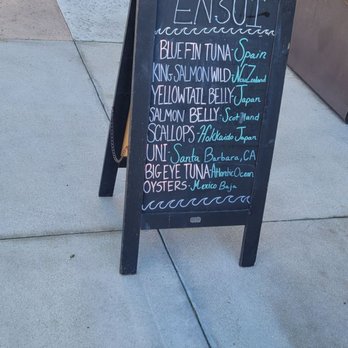 ENSUI
BLUE FIN TUNA · Spain
KING SALMON WILD · NZ New Zealand
YELLOWTAIL BELLY · Japan
SALMON BELLY · Scotland
SCALLOPS · Hokkaido Japan
UNI · Santa Barbara, CA
BIG EYE TUNA Atlantic Ocean
OYSTERS · Mexico Baja